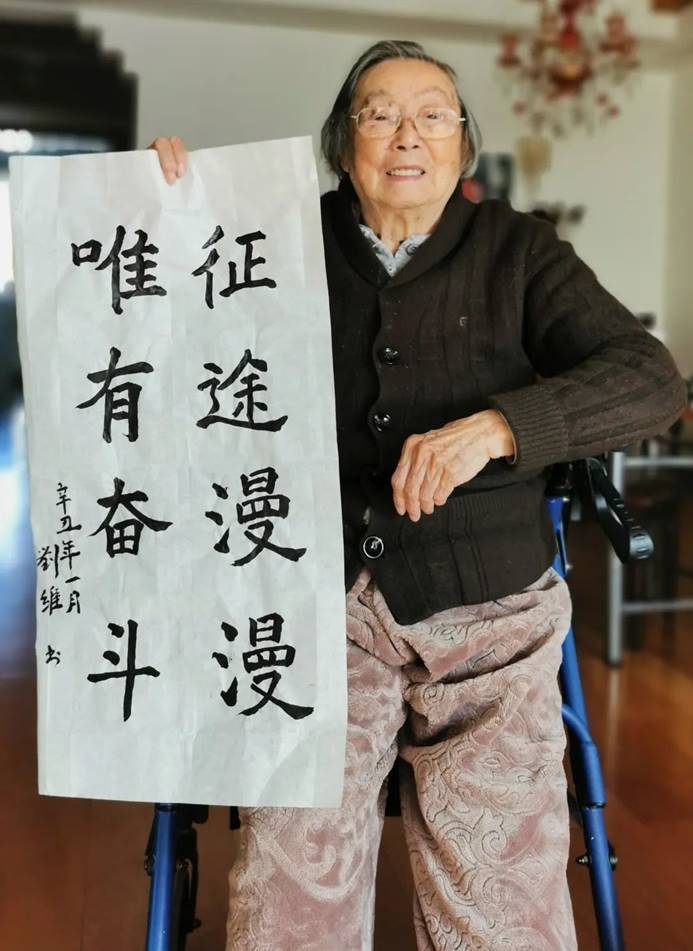 征途漫漫
唯有奋斗
辛丑年一月
劉維书